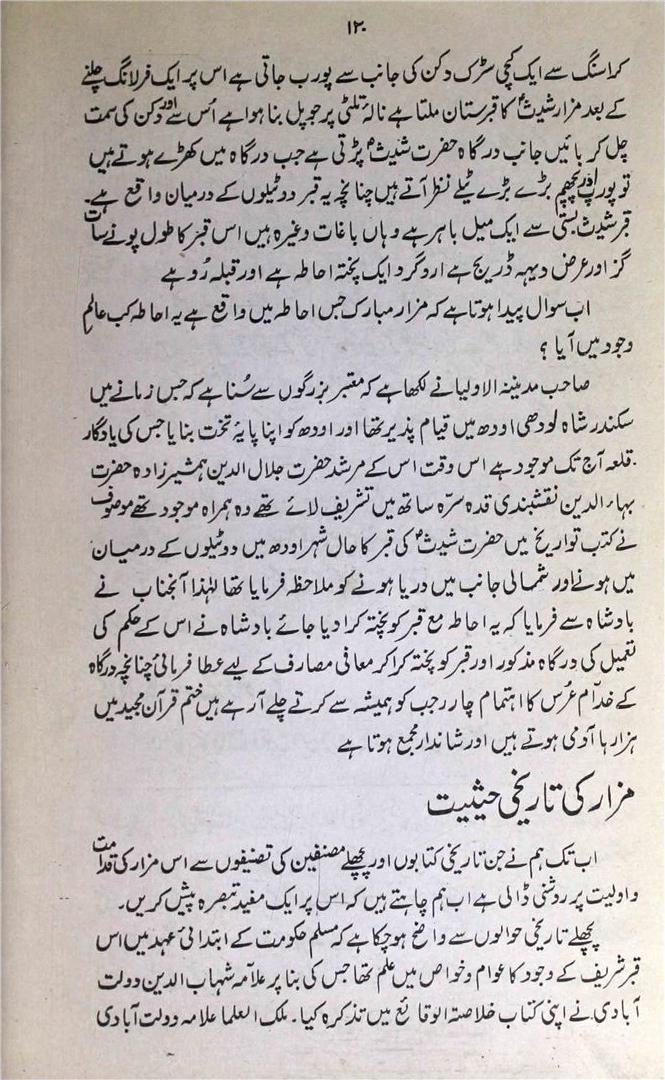 ۱۲۰
کراسنگ سے ایک کچی سڑک دکن کی جانب سے پورب جاتی ہے اس پر ایک فرلانگ چلنے
کے بعد مزار شیثؑ کا قبرستان ملتا ہے نالۂ تلئی پر جو پل بنا ہوا ہے اُس سے اور دکن کی سمت
چل کر بائیں جانب درگاہ حضرت شیثؑ پڑتی ہے جب درگاہ میں کھڑے ہوتے ہیں
تو پورب اور پچھم بڑے بڑے ٹیلے نظر آتے ہیں چنانچہ یہ قبر دو ٹیلوں کے درمیان واقع ہے۔
قبر شیث بستی سے ایک میل باہر ہے وہاں باغات وغیرہ ہیں اس قبر کا طول پونے سات
گز اور عرض دیہہ ڈریج ہے اردگرد ایک پختہ احاطہ ہے اور قبلہ رُو ہے
اب سوال پیدا ہوتا ہے کہ مزار مبارک جس احاطہ میں واقع ہے یہ احاطہ کب عالمِ
وجود میں آیا ؟
صاحب مدینۃ الاولیا نے لکھا ہے کہ معتبر بزرگوں سے سُنا ہے کہ جس زمانے میں
سکندر شاہ لودھی اودھ میں قیام پذیر تھا اور اودھ کو اپنا پایۂ تخت بنایا جس کی یادگار
قلعہ آج تک موجود ہے اس وقت اس کے مرشد حضرت جلال الدین ہمشیر زادہ حضرت
بہاء الدین نقشبندی قدہ سرّہ ساتھ میں تشریف لائے تھے وہ ہمراہ موجود تھے موصوف
نے کتب تواریخ میں حضرت شیثؑ کی قبر کا حال شہر اودھ میں دو ٹیلوں کے درمیان
میں ہونے اور شمالی جانب میں دریا ہونے کو ملاحظہ فرمایا تھا لہٰذا آنجناب نے
بادشاہ سے فرمایا کہ یہ احاطہ مع قبر کو پختہ کرا دیا جائے بادشاہ نے اس کے حکم کی
تعمیل کی درگاہ مذکور اور قبر کو پختہ کرا کر معافی مصارف کے لیے عطا فرمائی چنانچہ درگاہ
کے خدّام عُرس کا اہتمام چار رجب کو ہمیشہ سے کرتے چلے آرہے ہیں ختم قرآن مجید میں
ہزارہا آدمی ہوتے ہیں اور شاندار مجمع ہوتا ہے
مزار کی تاریخی حیثیت
اب تک ہم نے جن تاریخی کتابوں اور پچھلے مصنفین کی تصنیفوں سے اس مزار کی قدامت
و اولیت پر روشنی ڈالی ہے اب ہم چاہتے ہیں کہ اس پر ایک مفید تبصرہ پیش کریں۔
پچھلے تاریخی حوالوں سے واضح ہوچکا ہے کہ مسلم حکومت کے ابتدائی عہد میں اس
قبر شریف کے وجود کا عوام وخواص میں علم تھا جس کی بنا پر علامہ شہاب الدین دولت
آبادی نے اپنی کتاب خلاصۃ الوقائع میں تذکرہ کیا۔ ملک العلما علامہ دولت آبادی